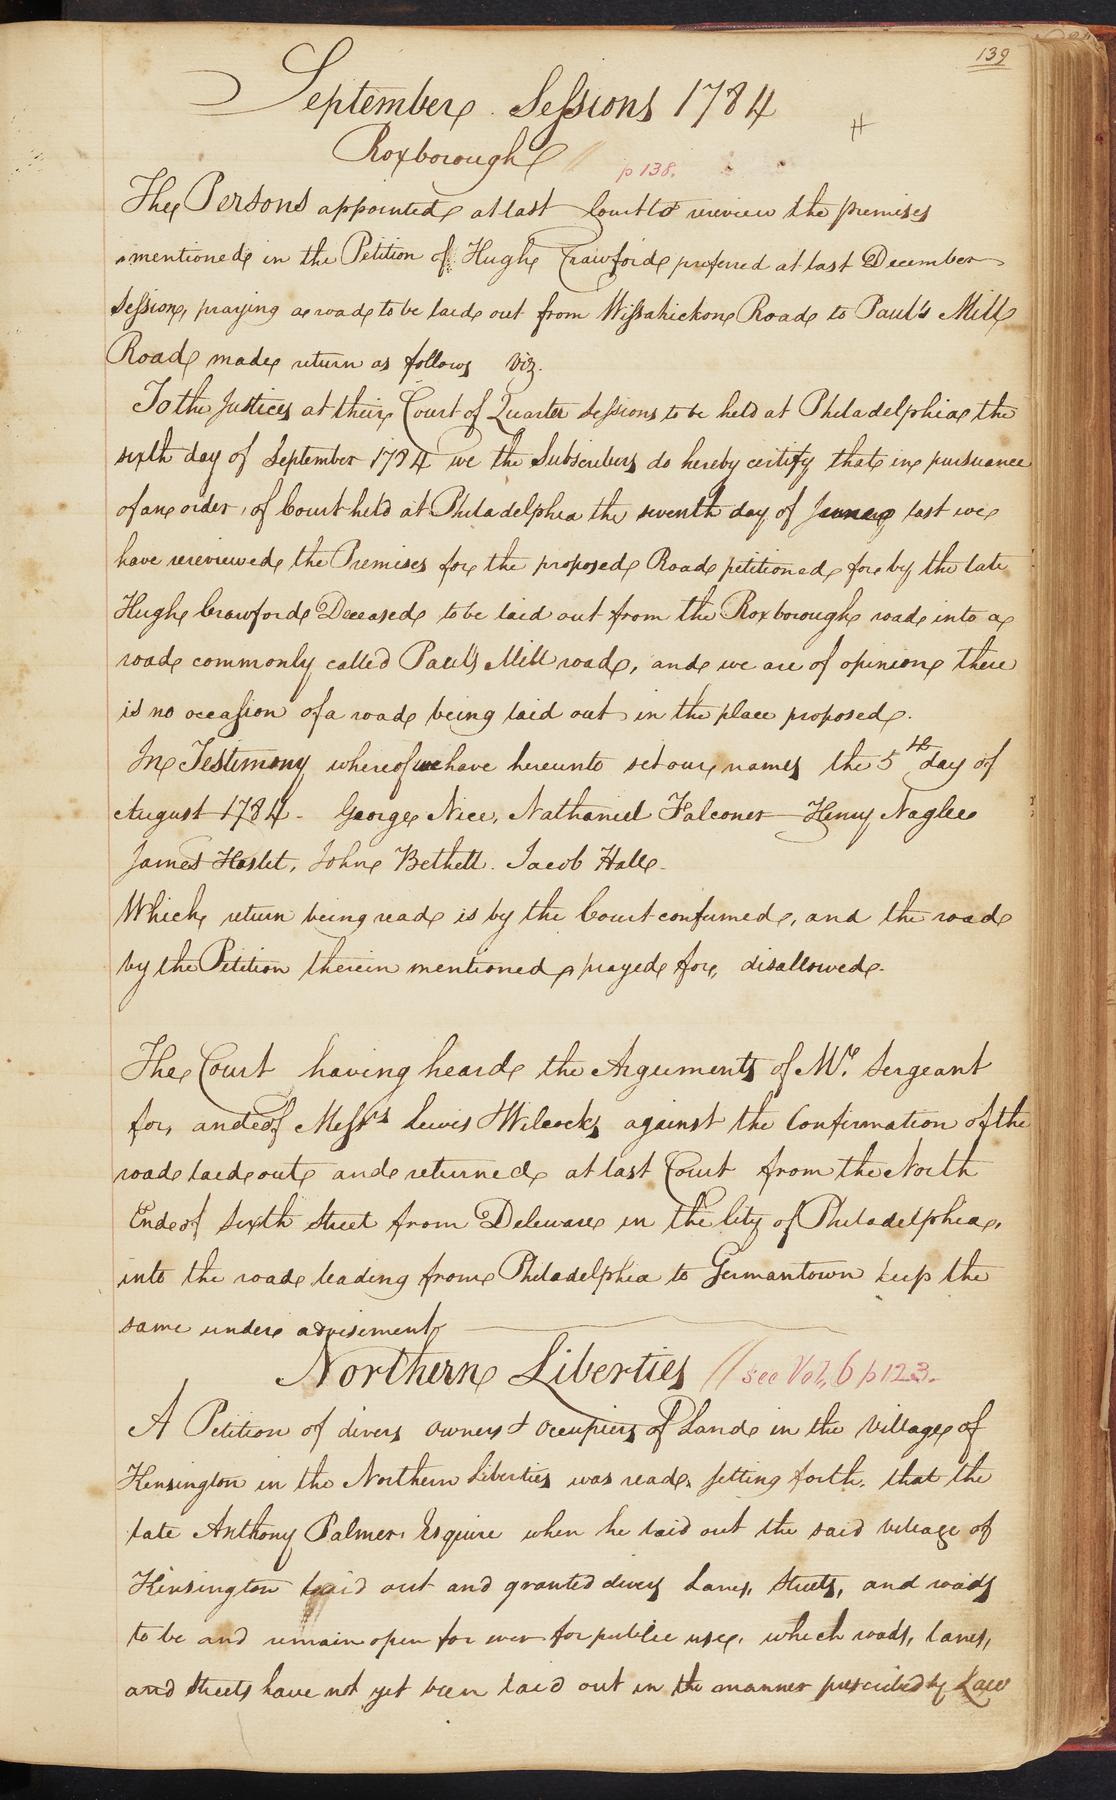 139
September Sessions 1784
Roxborough //
p 138.
The Persons appointed at last Court to rereview the premises
mentioned in the Petition of Hugh Crawford preferred at last December
Session, praying a road to be laid out from Wissahickon Road to Paul's Mill
Road made return as follows Viz.
To the Justices at their Court of Quarter Sessions to be held at Philadelphia the
sixth day of September 1784 we the Subscribers do hereby certify that in pursuance
of an order, of Court held at Philadelphia the seventh day of June last we
have rereviewed the Premises for the proposed Road petitioned for by the late
Hugh Crawford Deceased to be laid out from the Roxborough road into a
road commonly called Paul's Mill road, and we are of opinion there
is no occasion of a road being laid out in the place proposed.
In Testimony whereof we have hereunto set our names the 5th day of
August 1784 - George Nice, Nathaniel Falconer Henry Naglee
James Haslet, John Bethell. Jacob Hall.
Which return being read is by the Court confirmed, and the road
by the Petition therein mentioned prayed for, disallowed.
The Court having heard the Arguments of Mr. Sergeant
for, and of Messrs Lewis & Wilcocks against the Confirmation of the
road laid out and returned at last Court from the North
End of Sixth Street from Deleware in the City of Philadelphia,
into the road leading from Philadelphia to Germantown keep the
same under advisement
Northern Liberties // see Vol. 6 p 123.
A Petition of divers owners & occupiers of Land in the Village of
Kensington in the Northern Liberties was read, setting forth, that the
late Anthony Palmer, Esquire when he laid out the said Village of
Kinsington laid out and granted divers Lanes, Streets, and roads
to be and remain open for ever for public use, which roads, lanes,
and streets have not yet been laid out in the manner prescribed by Law